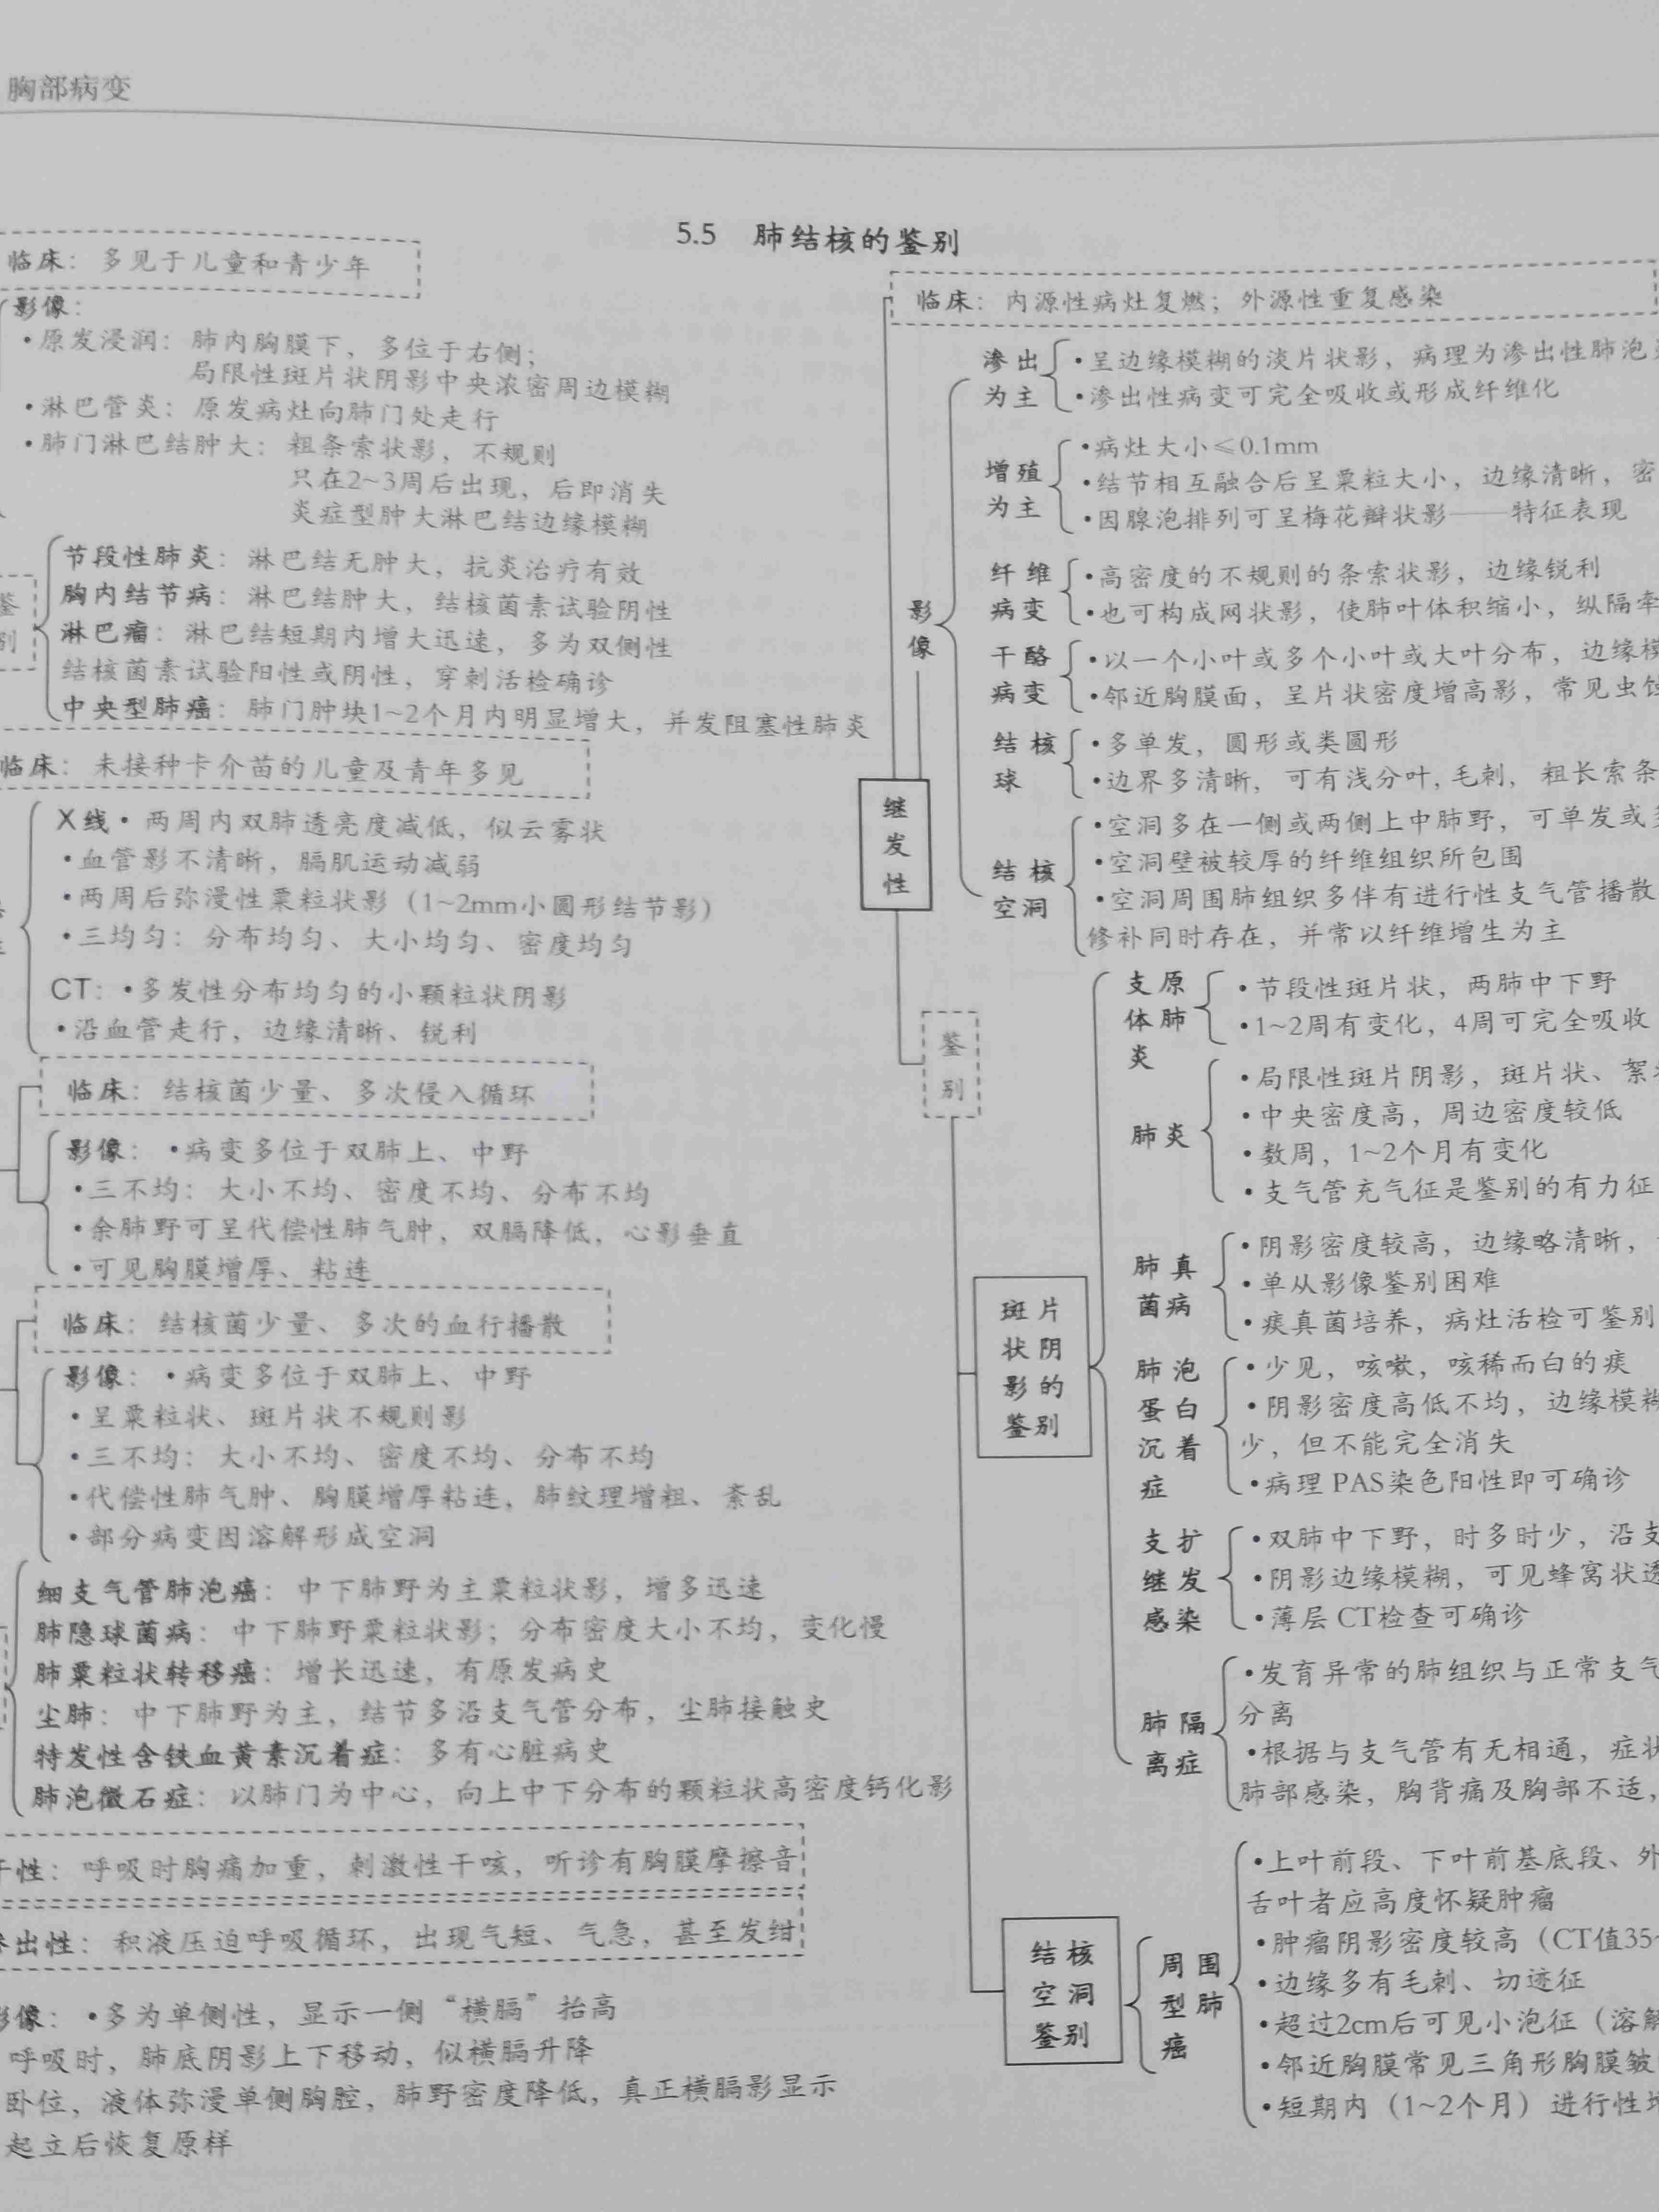 胸部病变
5.5 肺结核的鉴别
临床：多见于儿童和青少年
影像：
•原发浸润：肺内胸膜下，多位于右侧；
局限性斑片状阴影中央浓密周边模糊
•淋巴管炎：原发病灶向肺门处走行
•肺门淋巴结肿大：粗条索状影，不规则
只在2~3周后出现，后即消失
炎症型肿大淋巴结边缘模糊
鉴
别
节段性肺炎：淋巴结无肿大，抗炎治疗有效
胸内结节病：淋巴结肿大，结核菌素试验阴性
淋巴瘤：淋巴结短期内增大迅速，多为双侧性
结核菌素试验阳性或阴性，穿刺活检确诊
中央型肺癌：肺门肿块1~2个月内明显增大，并发阻塞性肺炎
临床：未接种卡介苗的儿童及青年多见
X线•两周内双肺透亮度减低，似云雾状
•血管影不清晰，膈肌运动减弱
•两周后弥漫性粟粒状影（1~2mm小圆形结节影）
•三均匀：分布均匀、大小均匀、密度均匀
CT：•多发性分布均匀的小颗粒状阴影
•沿血管走行，边缘清晰、锐利
临床：结核菌少量、多次侵入循环
影像：•病变多位于双肺上、中野
•三不均：大小不均、密度不均、分布不均
•余肺野可呈代偿性肺气肿，双膈降低，心影垂直
•可见胸膜增厚、粘连
临床：结核菌少量、多次的血行播散
影像：•病变多位于双肺上、中野
•呈粟粒状、斑片状不规则影
•三不均：大小不均、密度不均、分布不均
•代偿性肺气肿、胸膜增厚粘连，肺纹理增粗、紊乱
•部分病变因溶解形成空洞
细支气管肺泡癌：中下肺野为主粟粒状影，增多迅速
肺隐球菌病：中下肺野粟粒状影；分布密度大小不均，变化慢
肺粟粒状转移癌：增长迅速，有原发病史
尘肺：中下肺野为主，结节多沿支气管分布，尘肺接触史
特发性含铁血黄素沉着症：多有心脏病史
肺泡微石症：以肺门为中心，向上中下分布的颗粒状高密度钙化影
干性：呼吸时胸痛加重，刺激性干咳，听诊有胸膜摩擦音
出性：积液压迫呼吸循环，出现气短、气急，甚至发绀
影像：•多为单侧性，显示一侧“横膈”抬高
呼吸时，肺底阴影上下移动，似横膈升降
卧位，液体弥漫单侧胸腔，肺野密度降低，真正横膈影显示
起立后恢复原样
继
发
性
临床：内源性病灶复燃；外源性重复感染
影
像
渗出
为主
•呈边缘模糊的淡片状影，病理为渗出性肺泡
•渗出性病变可完全吸收或形成纤维化
增殖
为主
•病灶大小≤0.1mm
•结节相互融合后呈粟粒大小，边缘清晰，密
•因腺泡排列可呈梅花瓣状影——特征表现
纤维
病变
•高密度的不规则的条索状影，边缘锐利
•也可构成网状影，使肺叶体积缩小，纵隔牵
干酪
病变
•以一个小叶或多个小叶或大叶分布，边缘模
•邻近胸膜面，呈片状密度增高影，常见虫蚀
结核
球
•多单发，圆形或类圆形
•边界多清晰，可有浅分叶，毛刺，粗长索条
结核
空洞
•空洞多在一侧或两侧上中肺野，可单发或
•空洞壁被较厚的纤维组织所包围
•空洞周围肺组织多伴有进行性支气管播散
修补同时存在，并常以纤维增生为主
鉴
别
斑片
状阴
影的
鉴别
支原
体肺
炎
•节段性斑片状，两肺中下野
•1~2周有变化，4周可完全吸收
肺炎
•局限性斑片阴影，斑片状、絮
•中央密度高，周边密度较低
•数周，1~2个月有变化
•支气管充气征是鉴别的有力征
肺真
菌病
•阴影密度较高，边缘略清晰，
•单从影像鉴别困难
•痰真菌培养，病灶活检可鉴别
肺泡
蛋白
沉着
症
•少见，咳嗽，咳稀而白的痰
•阴影密度高低不均，边缘模糊
少，但不能完全消失
•病理 PAS染色阳性即可确诊
支扩
继发
感染
•双肺中下野，时多时少，沿支
•阴影边缘模糊，可见蜂窝状透
•薄层 CT检查可确诊
肺隔
离症
•发育异常的肺组织与正常支气
分离
•根据与支气管有无相通，症状
肺部感染，胸背痛及胸部不适，
结核
空洞
鉴别
周围
型肺
癌
•上叶前段、下叶前基底段、外
舌叶者应高度怀疑肿瘤
•肿瘤阴影密度较高（CT值35~
•边缘多有毛刺、切迹征
•超过2cm后可见小泡征（溶解
•邻近胸膜常见三角形胸膜皱
•短期内（1~2个月）进行性增